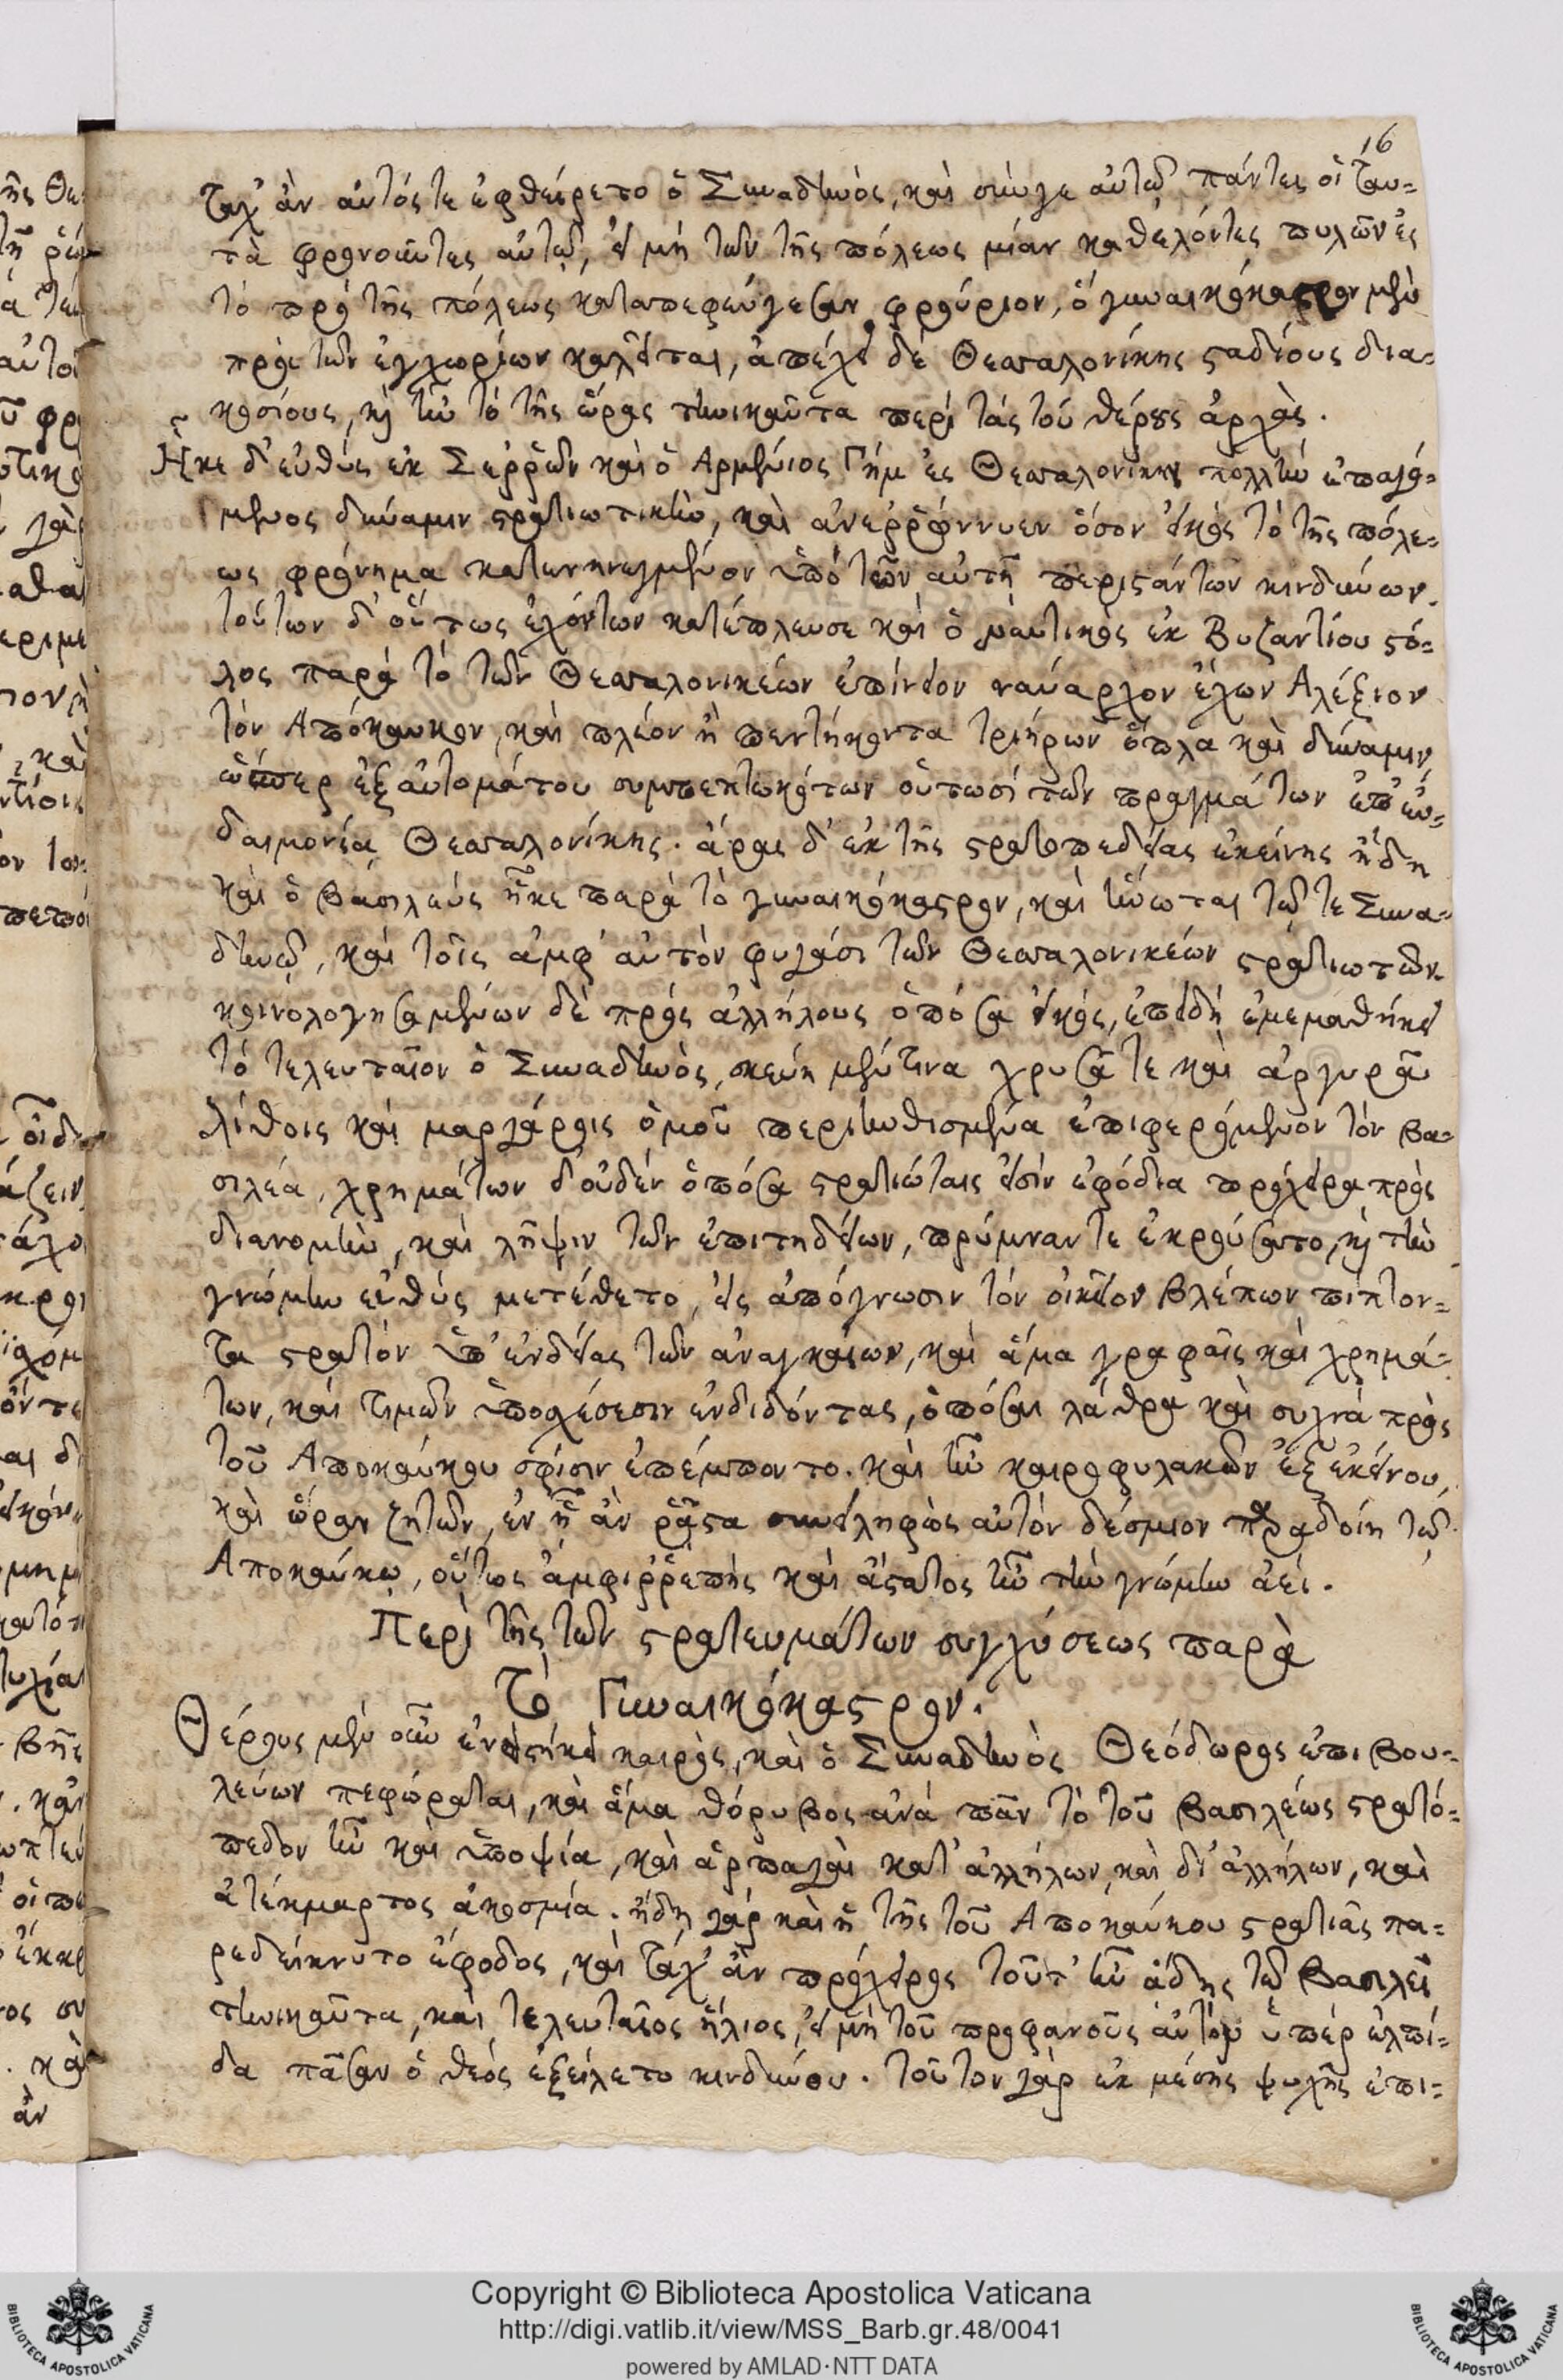 16
ταχ' ἂν αὐτός τε ἐφθείρετο ὁ Συναδηνὸς, καὶ σύν γε αὐτῷ πάντες οἱ ταυ-
τὰ φρονοῦντες αὐτῷ, εἰ μὴ τῶν τῆς πόλεως μίαν καθελόντες πυλῶν ἐς
τὸ πρὸ τῆς πόλεως καταπεφεύγεσαν φρούριον, ὃ γυναικόκαστρον μὲν
πρὸς τῶν ἐγχωρίων καλεῖται, ἀπέχει δὲ Θεσσαλονίκης σταδίους δια-
κοσίους, καὶ ἦν τὸ τῆς ὥρας τηνικαῦτα περὶ τὰς τοῦ θέρους ἀρχάς.
Ἧκε δ' εὐθὺς ἐκ Σερρῶν καὶ ὁ Αρμένιος Γὴμ ἐς Θεσσαλονίκην πολλὴν ἐπαγό-
μενος δύναμιν στρατιωτικὴν, καὶ ἀνερρώννυεν ὅσον εἰκὸς τὸ τῆς πόλε-
ως φρόνημα κατενηνεγμένον ὑπὸ τῶν αὐτῇ περιστάντων κινδύνων.
τούτων δ' οὕτως ἐχόντων κατέπλευσε καὶ ὁ ναυτικὸς ἐκ Βυζαντίου στό-
λος παρὰ τὸ τῶν Θεσσαλονικέων ἐπίνειον ναύαρχον ἔχων Αλέξιον
τὸν Απόκαυκον, καὶ πλέον ἢ πεντήκοντα τριήρων ὅπλα καὶ δύναμιν,
ὥσπερ ἐξ αὐτομάτου συμπεπτωκότων οὑτωσὶ τῶν πραγμάτων ἐπ' εὐ-
δαιμονίᾳ Θεσσαλονίκης. ἄρας δ' ἐκ τῆς στρατοπεδείας ἐκείνης ἤδη
καὶ ὁ βασιλεὺς ἧκε παρὰ τὸ γυναικόκαστρον, καὶ ἥνωται τῷ τε Συνα-
δηνῷ, καὶ τοῖς ἀμφ' αὐτὸν φυγάσι τῶν Θεσσαλονικέων στρατιωτῶν.
κοινολογησαμένων δὲ πρὸς ἀλλήλους ὁπόσα εἰκὸς, ἐπειδὴ ἐμεμαθήκει
τὸ τελευταῖον ὁ Συναδηνὸς, σκεύη μέν τινα χρυσᾶ τε καὶ ἀργυρᾶ
λίθοις καὶ μαργάροις ὁμοῦ περιηνθισμένα ἐπιφερόμενον τὸν βα-
σιλέα, χρημάτων δ' οὐδὲν ὁπόσα στρατιώταις εἰσὶν ἐφόδια πρόχειρα πρὸς
διανομὴν, καὶ λῆψιν τῶν ἐπιτηδείων, πρύμναν τε ἐκρούσατο, καὶ τὴν
γνώμην εὐθὺς μετέθετο, εἰς ἀπόγνωσιν τὸν οἰκεῖον βλέπων πίπτον-
τα στρατὸν ὑπ' ἐνδείας τῶν ἀναγκαίων, καὶ ἅμα γραφαῖς καὶ χρημά-
των, καὶ τιμῶν ὑποσχέσεσιν ἐνδιδόντας, ὁπόσαι λάθρα καὶ συχνὰ πρὸς
τοῦ Αποκαύκου σφίσιν ἐπέμποντο. καὶ ἦν καιροφυλακῶν ἐξ ἐκείνου,
καὶ ὥραν ζητῶν, ἐν ᾗ ἂν ῥᾷστα συνειληφὼς αὐτὸν δέσμιον παραδοίη τῷ
Αποκαύκῳ, οὕτως ἀμφιρρεπὴς καὶ ἄστατος ἦν τὴν γνώμην ἀεί.
Περὶ τῆς τῶν στρατευμάτων συγχύσεως παρὰ
τὸ Γυναικόκαστρον.
Θέρους μὲν οὖν ἐνειστήκει καιρὸς, καὶ ὁ Συναδηνὸς Θεόδωρος ἐπιβου-
λεύων πεφώραται, καὶ ἅμα θόρυβος ἀνὰ πᾶν τὸ τοῦ βασιλέως στρατό-
πεδον ἦν καὶ ὑποψία, καὶ ἁρπαγαὶ κατ' ἀλλήλων, καὶ δι' ἀλλήλων, καὶ
ἀτέκμαρτος ἀκοσμία. ἤδη γὰρ καὶ ἡ τῆς τοῦ Αποκαύκου στρατιᾶς πα-
ρεδείκνυτο ἔφοδος, καὶ ταχ' ἂν πρόχειρος τοῦτ' ἦν ᾅδης τῷ βασιλεῖ
τηνικαῦτα, καὶ τελευταῖος ἥλιος, εἰ μὴ τοῦ προφανοῦς αὐτὸν ὑπὲρ ἐλπί-
δα πᾶσαν ὁ θεὸς ἐξείλετο κινδύνου. τοῦτον γὰρ ἐκ μέσης ψυχῆς ἐπι-
Copyright © Biblioteca Apostolica Vaticana
http://digi.vatlib.it/view/MSS_Barb.gr.48/0041
powered by AMLAD·NTT DATA
BIBLIOTECA APOSTOLICA VATICANA
BIBLIOTECA APOSTOLICA VATICANA